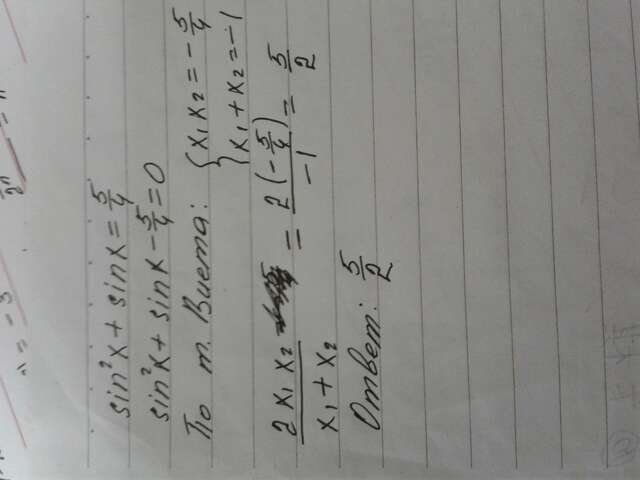 sin²x + sinx = 5/4
sin²x + sinx - 5/4 = 0
По т. Виета: { x₁x₂ = -5/4
{ x₁ + x₂ = -1
2x₁x₂ / x₁ + x₂ = 2(-5/4) / -1 = 5/2
Ответ: 5/2